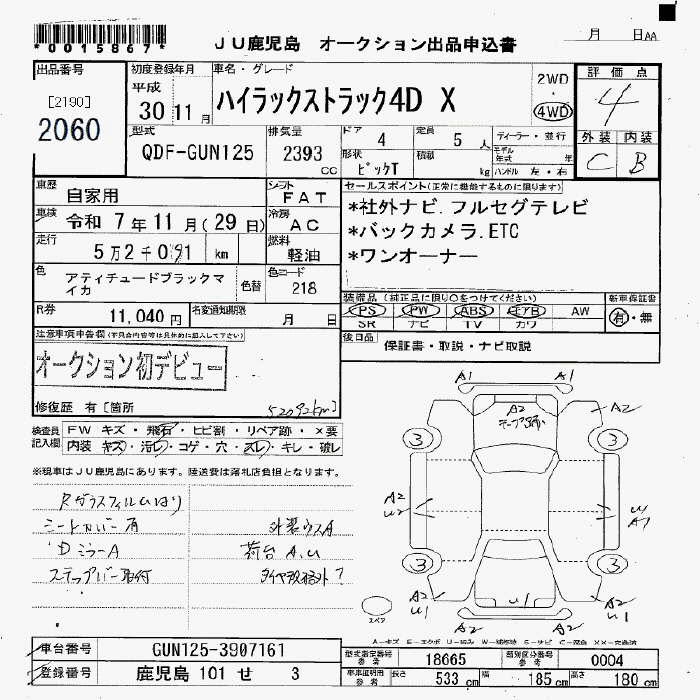 *0015867*
JU鹿児島 オークション出品申込書
月 日AA
出品番号
[2190]
2060
初度登録年月
平成
30 11 月
車名・グレード
ハイラックストラック4D X
2WD
4WD
評価点
4
外装 内装
C B
型式
QDF-GUN125
排気量
2393 CC
ドア 4
定員 5 人
形状 ピックT
積載 kg
ディーラー・並行
モデル年式 年
ハンドル 左・右
車歴
自家用
シフト
FAT
車検
令和 7年11月(29日)
冷房
AC
走行
5万2千091 km
燃料
軽油
色
アティチュードブラックマイカ
色替
色コード
218
セールスポイント(正常に機能するものに限ります)
*社外ナビ.フルセグテレビ
*バックカメラ.ETC
*ワンオーナー
R券
11,040 円
名変通知期限
月 日
装備品(純正品に限り○をつけてください)
PS PW ABS エアB AW
SR ナビ TV カワ
新車保証書
有・無
後日品
保証書・取説・ナビ取説
注意事項申告欄(不具合内容等は具体的に記入して下さい)
オークション初デビュー
修復歴 有[箇所
52092km]
検査員記入欄
FW キズ・飛石・ヒビ割・リペア跡・×要
内装 キズ・汚レ・コゲ・穴・スレ・キレ・破レ
※現車はJU鹿児島にあります。陸送費は落札店負担となります。
Rガラスフィルムはり
シートカバー有
外装ウスA
Dミラー A
荷台 A.U
ステップバー取付
タイヤ規格外?
A1 A1
A2
A2
3 3
A2
U2
U
A1
3 3
A2
U1
U1
A2
U1
A2 A2
スペア
A-キズ E-エクボ U-凹み W-補修跡 S-サビ C-腐食 XX-交換済
車台番号
GUN125-3907161
登録番号
鹿児島 101 せ 3
型式指定番号 参考
18665
類別区分番号 参考
0004
車庫証明用 参考
長さ 533 cm
幅 185 cm
高さ 180 cm